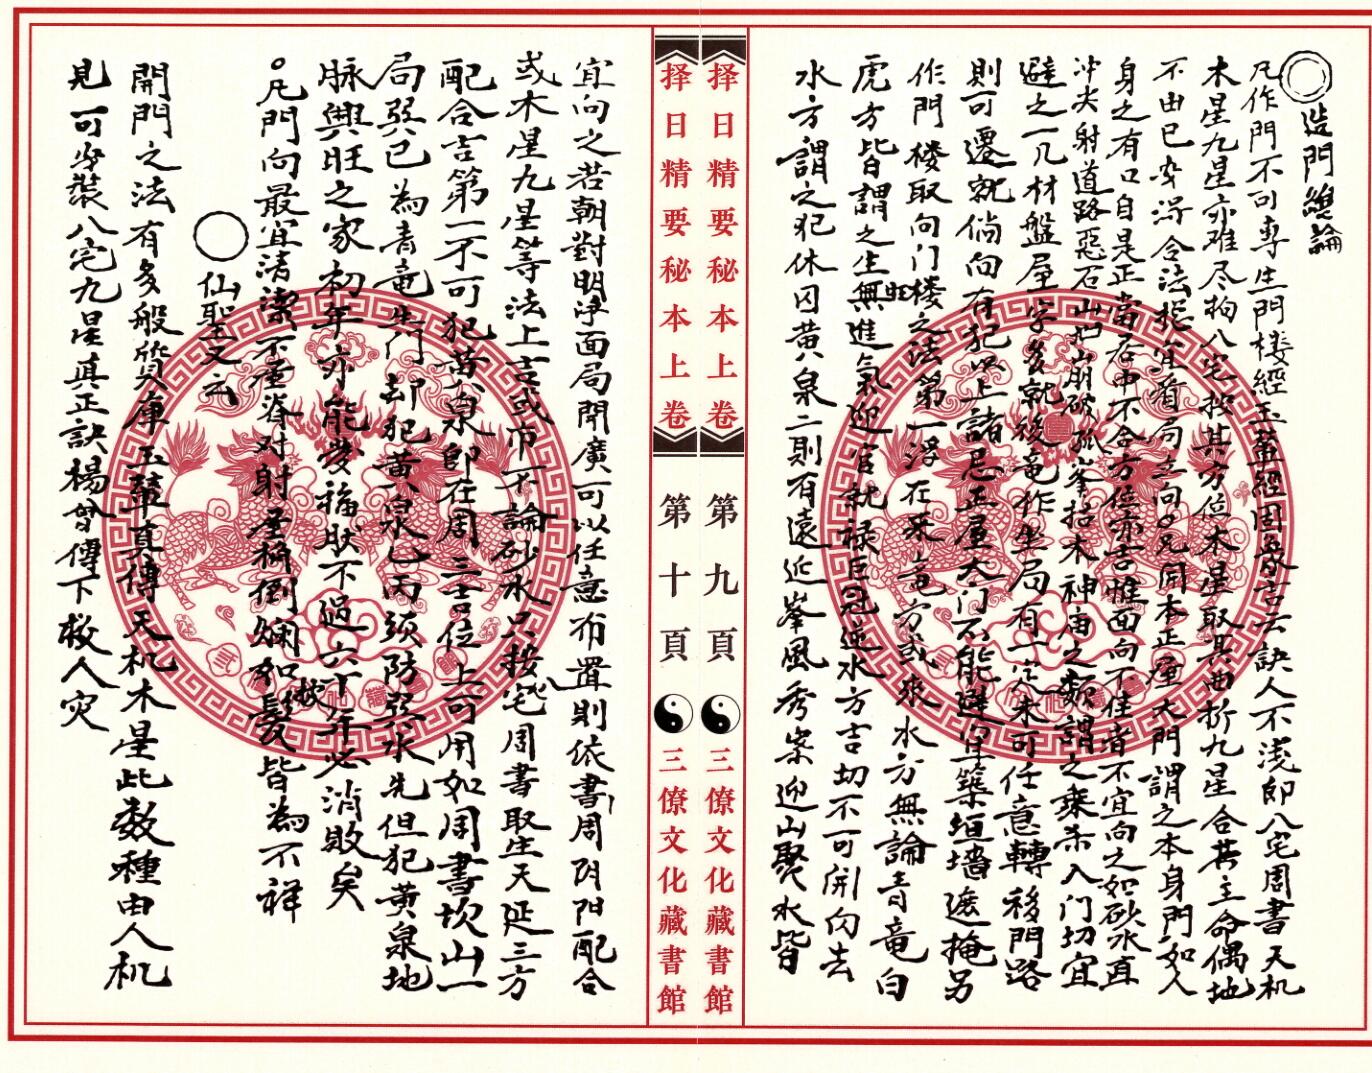 造門總論
凡作門不可專生門楼經玉輦經固象吉云訣人不浅即八宅周書天机
木星九星亦难尽拘八宅按其方位木星取其曲折九星合其主命偶地
不由已変得合法指宜看向立向凡開本正屋大門謂之本身門如人
身之有口自是正當居中不合方位亦吉惟面向不佳者不宜向之如砂水直
冲尖射道路惡石山 山朋破孤峯枯木神庙之類謂之乗杀入门切宜
避之一凡材盤屋字多就後竜作坐局有一定未可任意轉移門路
則可遷就倘向有犯以上諸忌正屋大门不能避 築垣墻遮掩另
作門楼取向门楼之法第一浮在来竜方或來水方無論青竜白
虎方皆謂之生旺無進氣迎官就禄臣冠逆水方吉切不可開向去
水方謂之犯休囚黄泉二則有遠近峯風秀崇迎山聚水皆
择日精要秘本上卷
第九頁
三僚文化藏書館
择日精要秘本上卷
第十頁
三僚文化藏書館
宜向之若朝對明净面局開廣可以任意布置則依書周阴阳配合
或木星九星等法上吉或市 不論砂水只按八宅周書取生天延三方
配合吉第一不可犯黄泉即在周三吉位上可用如周書坎山一
局巽巳為青竜生门却犯黄泉乙丙须防巽水先但犯黄泉地
脉興旺之家初年亦能發福然不過六十年必消敗矣
凡門向最宜清潔不重脊对射屋桷倒斓如披髮皆為不祥
仙聖又云
開門之法有多般货庫玉輦真傳天机木星此数種由人机
見可步裝八宅九星真正訣楊曾傳下救人灾